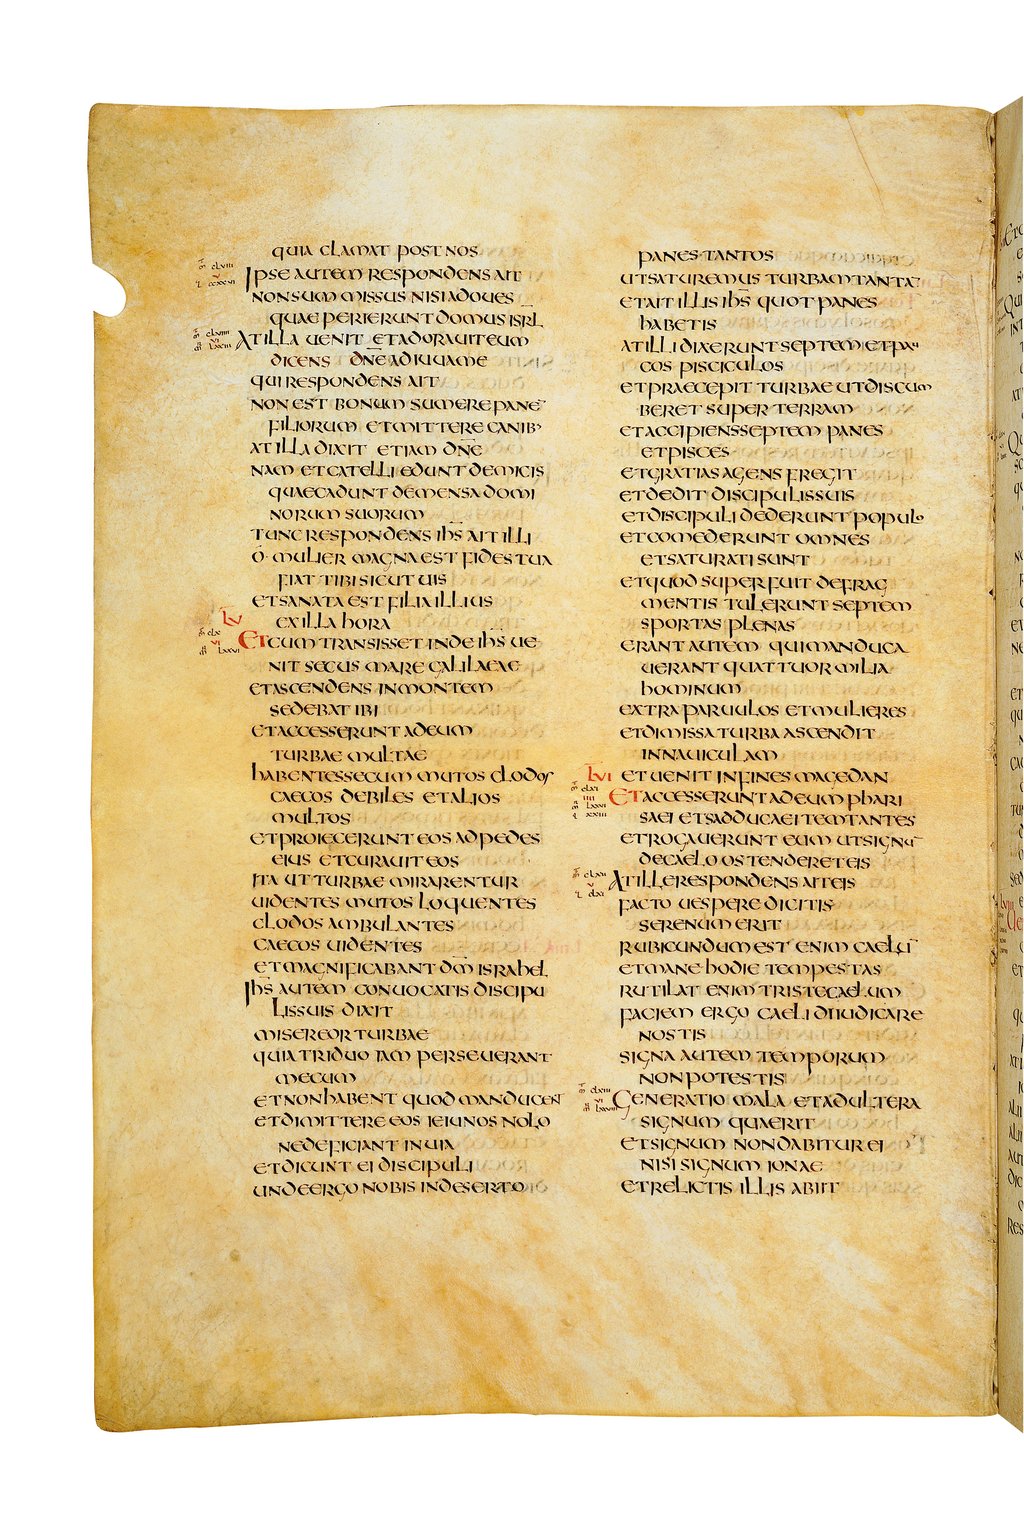 quia clamat post nos
Ipse autem respondens ait
non sum missus nisi ad oues
quae perierunt domus isrl
At illa uenit et adorauit eum
dicens dne adiuua me
qui respondens ait
non est bonum sumere pane
filiorum et mittere canib
at illa dixit etiam dne
nam et catelli edunt de micis
quae cadunt de mensa domi
norum suorum
tunc respondens ihs ait illi
o mulier magna est fides tua
fiat tibi sicut uis
et sanata est filia illius
ex illa hora
lv
Et cum transisset inde ihs ue
nit secus mare galilaeae
et ascendens in montem
sedebat ibi
et accesserunt ad eum
turbae multae
habentes secum mutos clodos
caecos debiles et alios
multos
et proiecerunt eos ad pedes
eius et curauit eos
ita ut turbae mirarentur
uidentes mutos loquentes
clodos ambulantes
caecos uidentes
et magnificabant dm israhel
Ihs autem conuocatis discipu
lis suis dixit
misereor turbae
quia triduo iam perseuerant
mecum
et non habent quod manducent
et dimittere eos ieiunos nolo
ne deficiant in uia
et dicunt ei discipuli
unde ergo nobis in deserto
panes tantos
ut saturemus turbam tanta
et ait illis ihs quot panes
habetis
at illi dixerunt septem et pau
cos pisciculos
et praecepit turbae ut discum
beret super terram
et accipiens septem panes
et pisces
et gratias agens fregit
et dedit discipulis suis
et discipuli dederunt populo
et comederunt omnes
et saturati sunt
et quod superfuit de frag
mentis tulerunt septem
sportas plenas
erant autem qui manduca
uerant quattuor milia
hominum
extra paruulos et mulieres
et dimissa turba ascendit
in nauiculam
lvi et uenit in fines magedan
Et accesserunt ad eum phari
saei et sadducaei temtantes
et rogauerunt eum ut signu
de caelo ostenderet eis
At ille respondens ait eis
facto uespere dicitis
serenum erit
rubicundum est enim caelu
et mane hodie tempestas
rutilat enim triste caelum
faciem ergo caeli diiudicare
nostis
signa autem temporum
non potestis
Generatio mala et adultera
signum quaerit
et signum non dabitur ei
nisi signum ionae
et relictis illis abiit